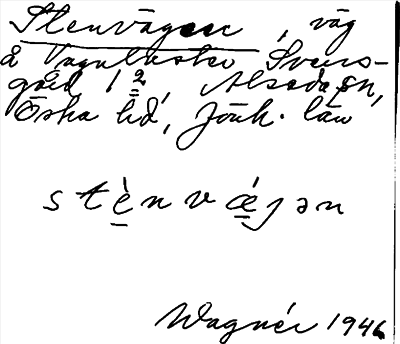 Stenvägen, väg
å Vagnhester Svens-
gård 1 2, Alseda sn,
Östra hd, Jönk. län
stènvǽjən
Wagnér 1946